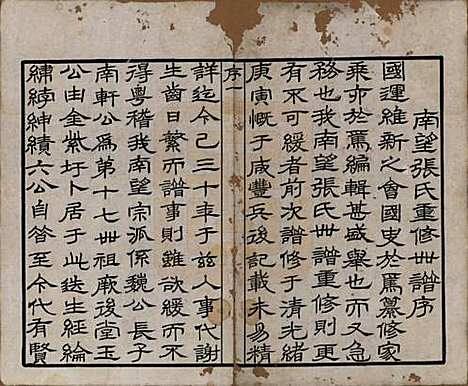 南望張氏重修世譜序
國運維新之會國史於焉纂修家
乘亦於焉編輯甚盛舉也而又急
務也我南望張氏世譜重修則更
有不可緩者前次譜修于清光緒
庚寅慨于咸豐兵後記載未易精
序一
詳迄今已三十年于茲人事代謝
生齒日繁而譜事則雖欲緩而不
得粵稽我南望宗派係魏公長子
南軒公為第十七世祖厥後堂玉
公由金紫圩卜居于此迭生經綸
繡綍紳績六公自昝至今代有賢